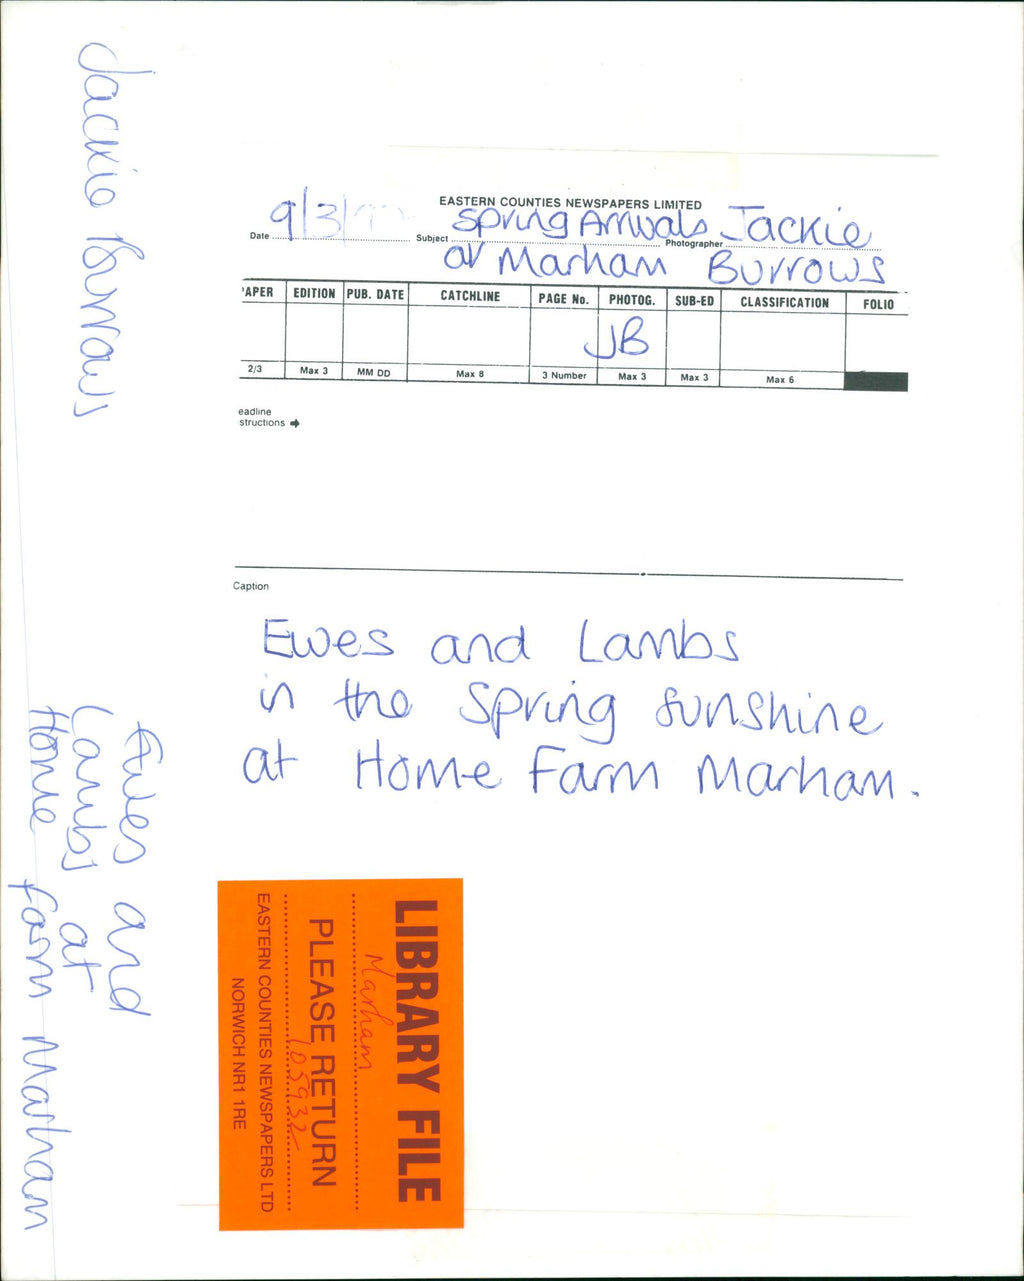 Jackie Burrows
EASTERN COUNTIES NEWSPAPERS LIMITED
Date 9/3/ Subject Spring Arrivals Photographer Jackie
at Marham Burrows
'APER EDITION PUB. DATE CATCHLINE PAGE No. PHOTOG. SUB-ED CLASSIFICATION FOLIO
JB
2/3 Max 3 MM DD Max 8 3 Number Max 3 Max 3 Max 6
eadline
structions
Caption
Ewes and Lambs
in the Spring sunshine
at Home Farm Marham.
Ewes and
Lambs at
Home Farm Marham
LIBRARY FILE
Marham
PLEASE RETURN
105932
EASTERN COUNTIES NEWSPAPERS LTD
NORWICH NR1 1RE